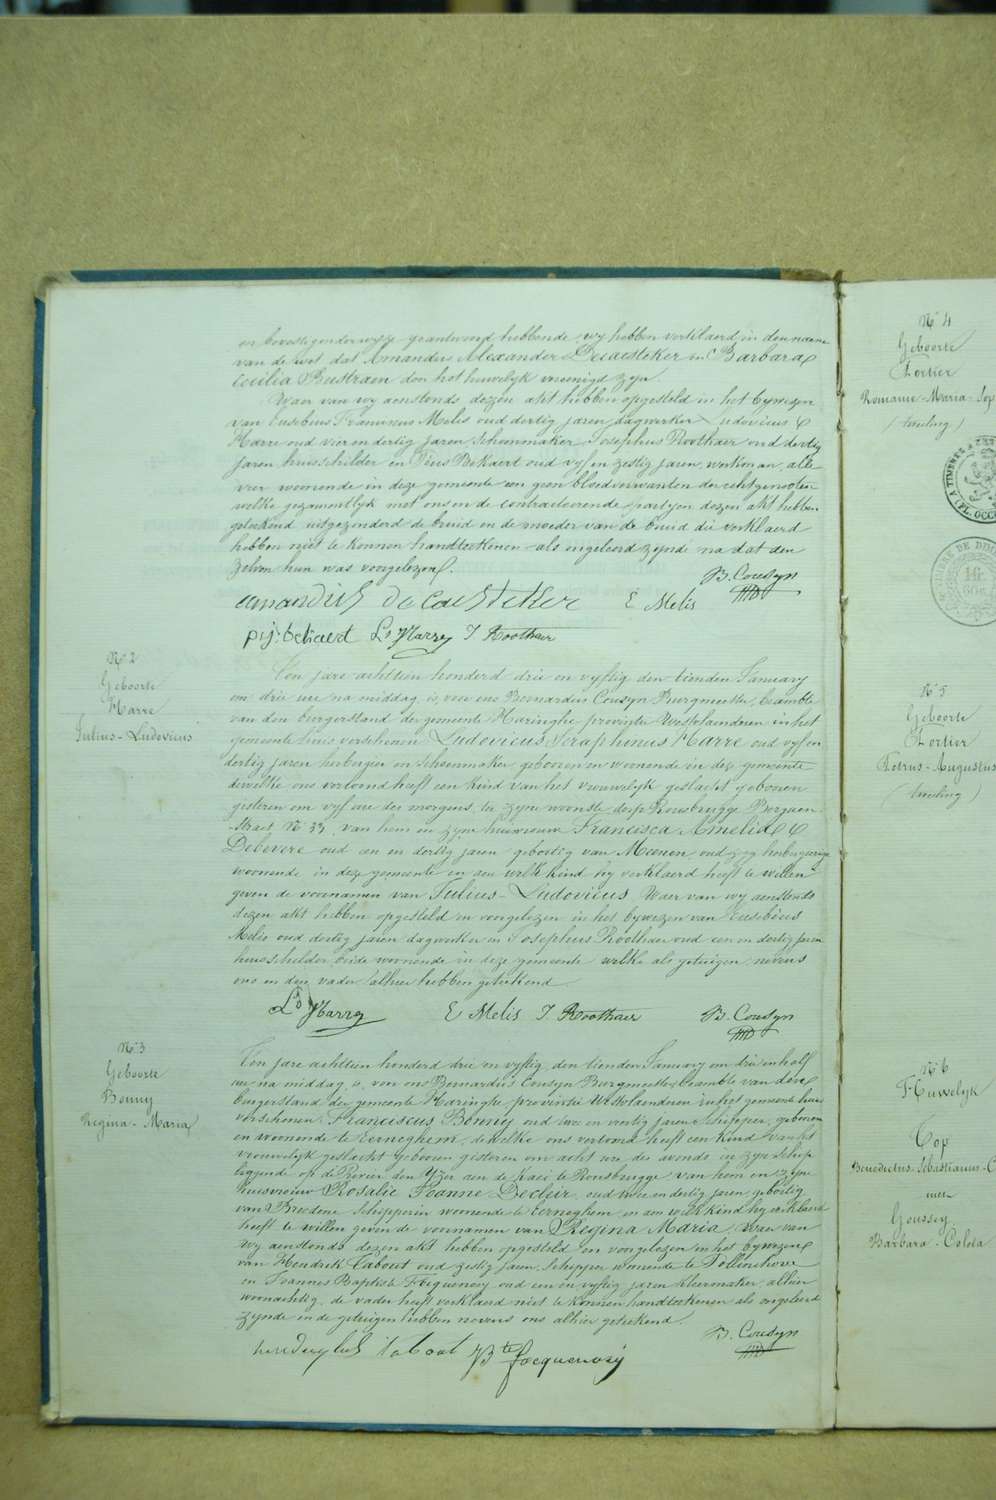 en bevestigenderwyze geantwoord hebbende wy hebben verklaerd in den naem
van de wet dat Amandus Alexander Decaesteker en Barbara
Cecilia Beestraen door het huwelyk vereenigd zyn.
Waer van wy aenstonds dezen akt hebben opgesteld in het bywezen
van Eusebius Franciscus Melis oud dertig jaren dagwerker Ludovicus
Harre oud vier en dertig jaren schoenmaker Josephus Roothaer oud dertig
jaren huisschilder en Pieus Bekaert oud vyf en zestig jaren, werkman, alle
vier woonende in deze gemeente en geen bloedverwanten der echtgenooten
welke gezamentlyk met ons en de contracteerende partyen dezen akt hebben
geteekend uitgezonderd de bruid en de moeder van de bruid die verklaerd
hebben niet te konnen handteekenen als ongeleerd zynde na dat den
zelven hun was voorgelezen.
B. Cousyn
amandus decaesteker E Melis
pij: bekaert Ls Harre J Roothaer
N° 2
Geboorte
Harre
Julius-Ludovicus
Ten jare achttien honderd drie en vyftig den tienden January
om drie ure na middag is voor ons Bernardus Cousyn Burgmeester, beambte
van den burgerstand der gemeente Haringhe provintie Westvlaenderen in het
gemeente huis verschenen Ludovicus Seraphinus Harre oud vyf en
dertig jaren herbergier en schoenmaker, geboren en woonende in deze gemeente
dewelke ons vertoond heeft een kind van het vrouwelyk geslacht geboren
gisteren om vyf ure des morgens, in zyne woonste dorp Rousbrugge Bergaen-
Straet, N° 33, van hem en zyne huisvrouw Francisca Amelia
Debevere oud een en dertig jaren geboortig van Meenen, oud zyg herbergierige
woonende in deze gemeente en aen welk kind hy verklaerd heeft te willen
geven de voornamen van Julius-Ludovicus, Waer van wy aenstonds
dezen akt hebben opgesteld en voorgelezen in het bywezen van Eusebius
Melis oud dertig jaren dagwerker en Josephus Roothaer oud een en dertig jaren
huisschilder, beide woonende in deze gemeente welke als getuigen nevens
ons en den vader alhier hebben geteekend
Ls Harre E Melis J Roothaer B. Cousyn
N° 3
Geboorte
Bonny
Regina-Maria
Ten jare achttien honderd drie en vyftig den tienden January om drie en half
ure na middag, is voor ons Bernardus Cousyn Burgmeester, beambte van den
burgerstand der gemeente Haringhe provintie Westvlaenderen in het gemeente huis
verschenen Franciscus Bonny oud twee en veertig jaren Schipper, geboren
en woonende te Eerneghem, dewelke ons vertoond heeft een kind van het
vrouwelyk geslacht geboren gisteren om acht ure des avonds in zyn schip
liggende op de Rivier den Yzer aen de Kaei te Rousbrugge van hem en zyne
huisvrouw Rosalie Joanne Decleir, oud twee en dertig jaren, geboortig
van Breedene Schipperin woonende te Eerneghem en aen welk kind hy verklaerd
heeft te willen geven de voornamen van Regina Maria, Waer van
wy aenstonds dezen akt hebben opgesteld en voorgelezen in het bywezen
van Hendrik Tabout oud zestig jaren, Schipper woonende te Pollinchove
en Joannes Baptiste Focquenoey oud een en vyftig jaren kleermaker alhier
woonachtig, de vader heeft verklaerd niet te konnen handteekenen als ongeleerd
zynde en de getuigen hebben nevens ons alhier geteekend.
B. Cousyn
tabout JBte focquenoey
N° 4
Geboorte
Lortier
Romanie-Maria-Sop
(tweling)
TIMBRES
N° 5
Geboorte
Lortier
Petrus-Augustus
(tweling)
N° 6
Huwelyk
Top
Benedictus-Sebastianus-C
met
Goussey
Barbara-Coleta